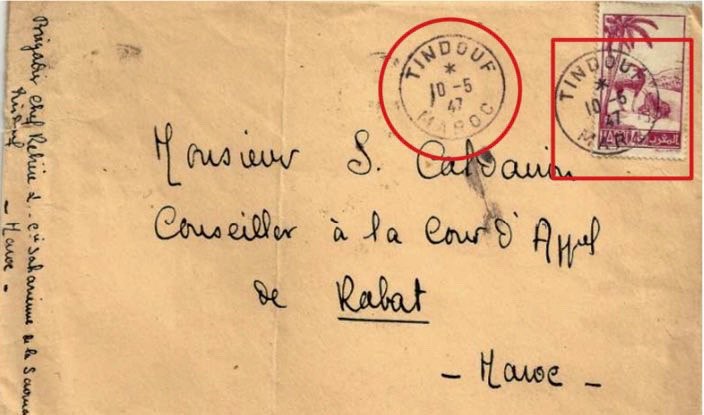 TINDOUF
*
10-5
47
MAROC
TINDOUF
*
10-5
47
MAR
MAROC
المغرب
Monsieur S.
Conseiller à la Cour d'Appel
de Rabat
- Maroc -
Brigadier Chef Cie Saharienne de la Saoura
Tindouf
- Maroc -